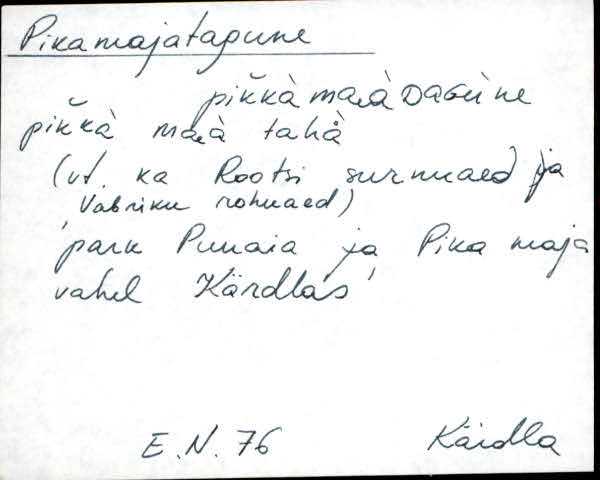 Pikamajatagune
pik̆kà maià DAGÙne
pik̆kà maià tahà
(vt. ka Rootsi surnuaed ja
Vabriku rohuaed)
park Punaia ja Pika maja
vahel Kärdlas
E.N. 76 Kärdla